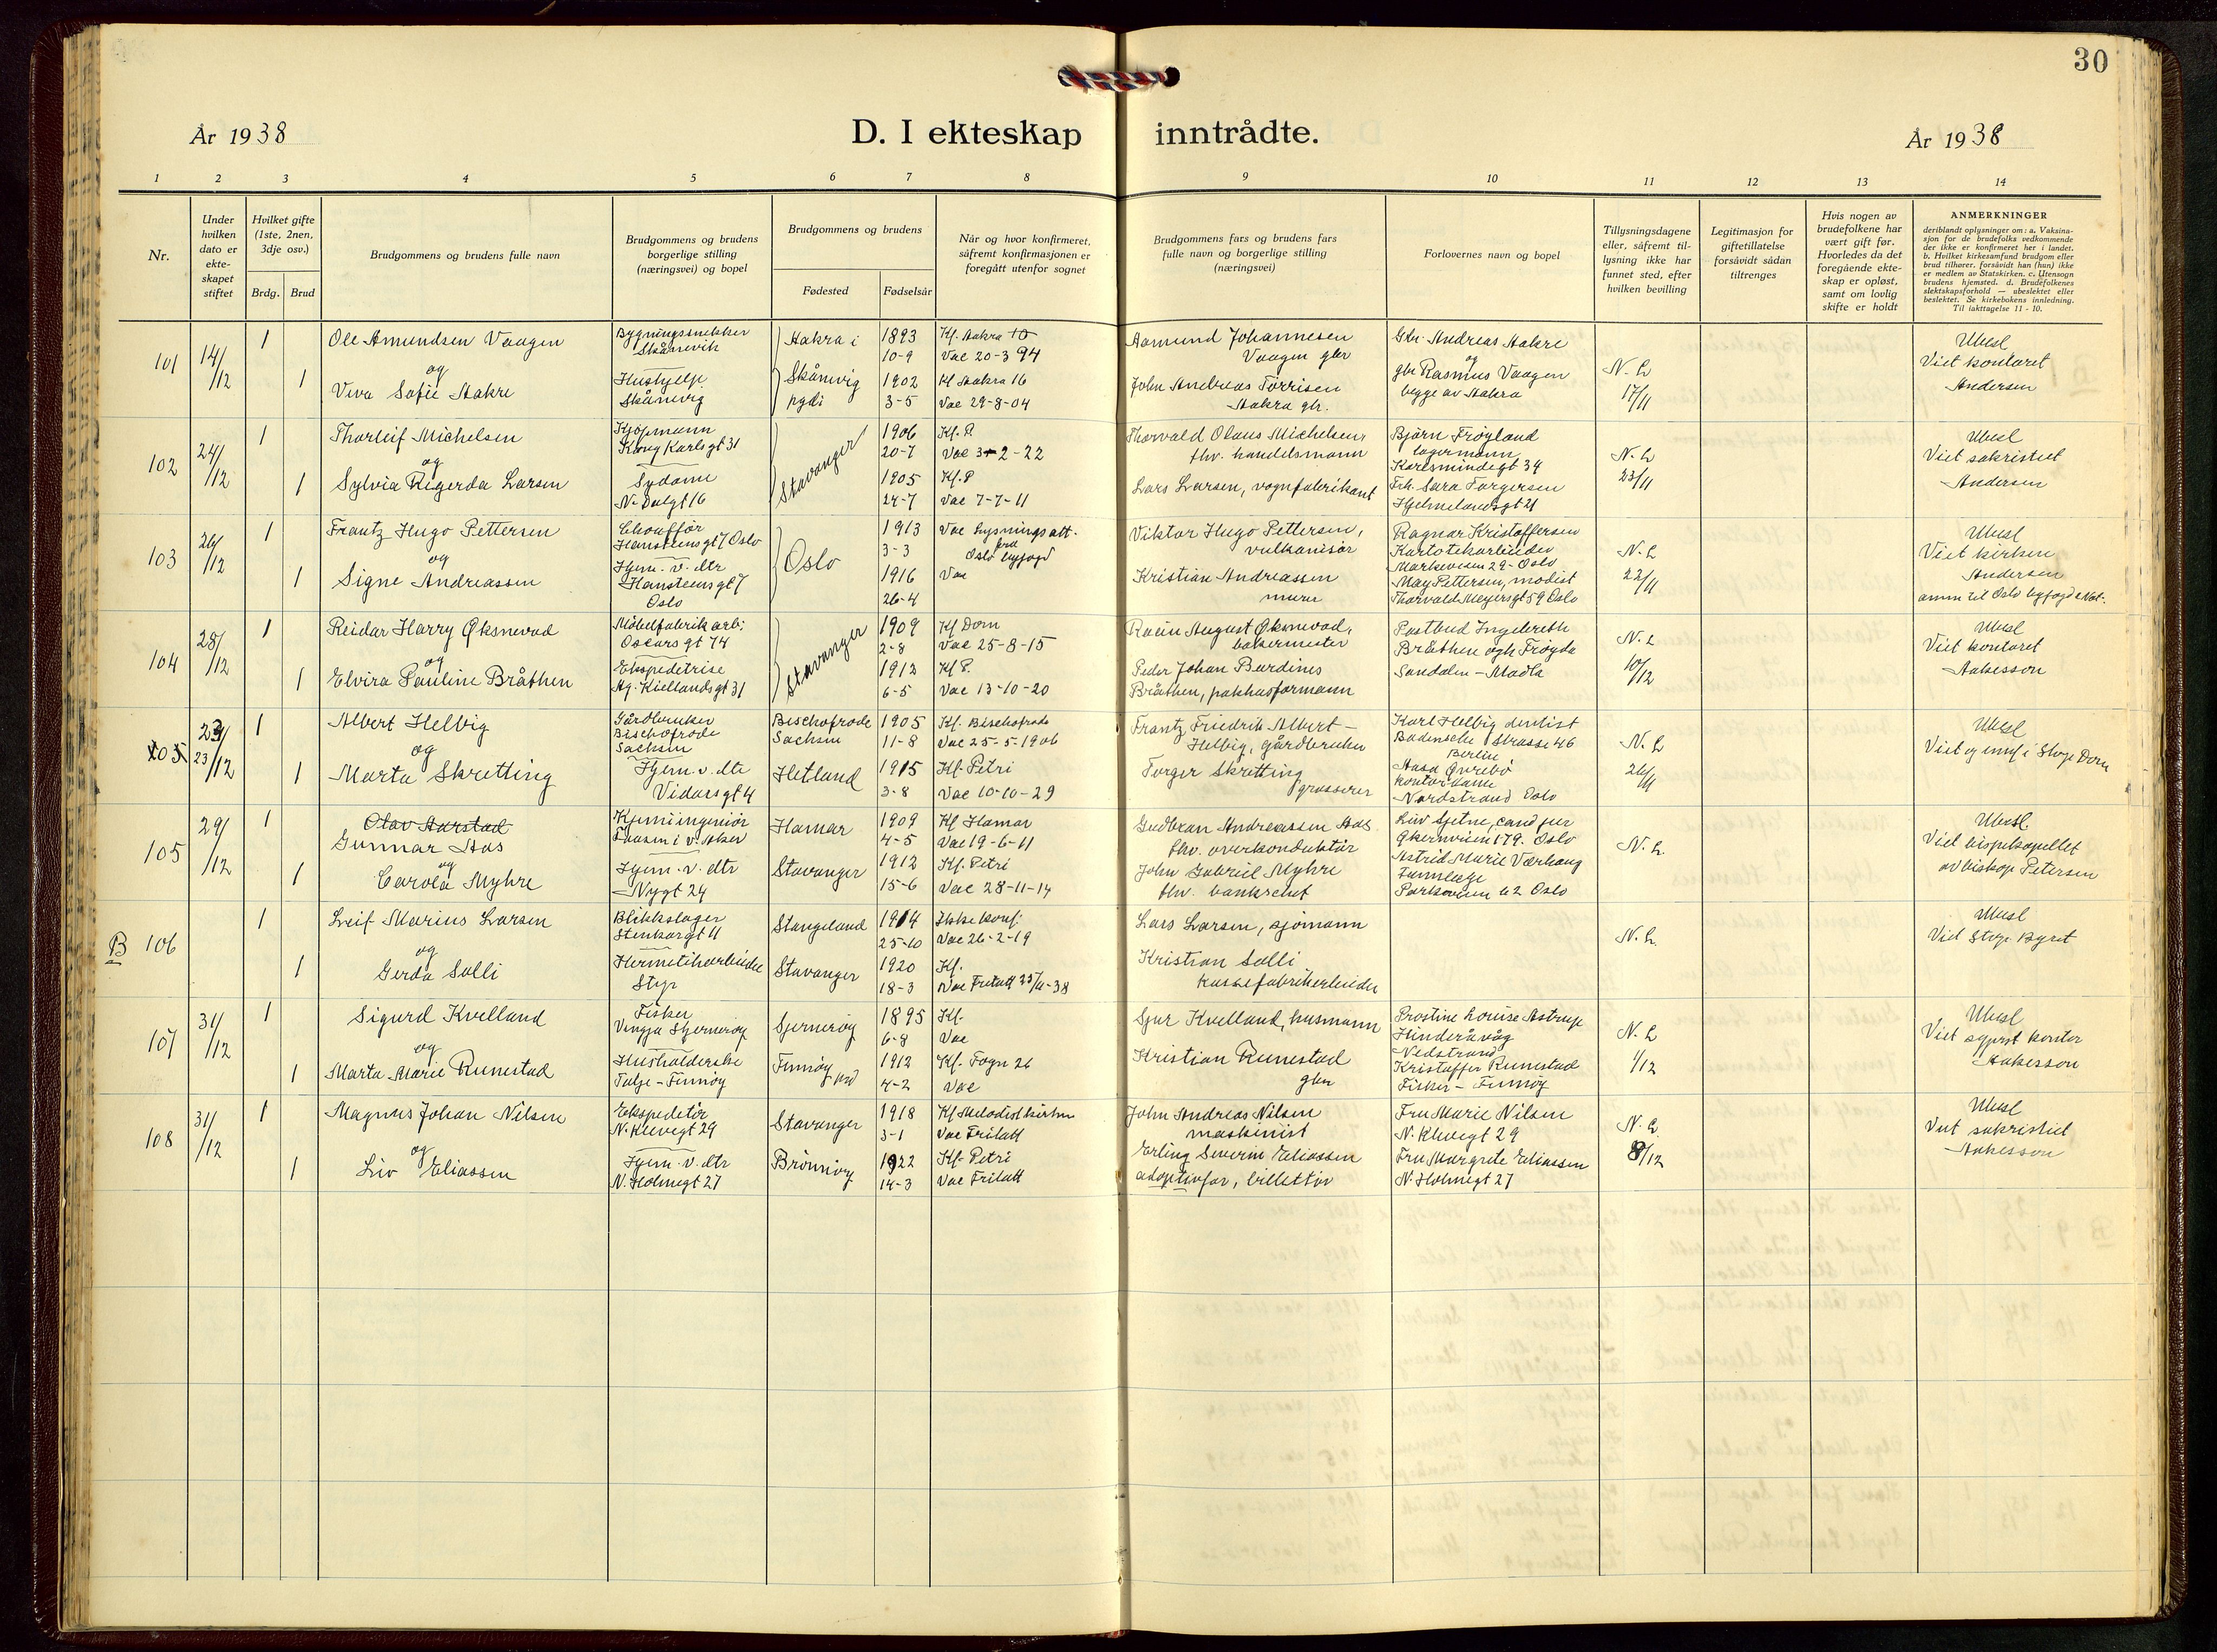 30
År 1938
D. I ekteskap inntrådte.
År 1938
1 2 3 4 5 6 7 8 9 10 11 12 13 14
Nr.
Under hvilken dato er ekte- skapet stiftet
Hvilket gifte (1ste, 2nen, 3dje osv.)
Brdg. Brud
Brudgommens og brudens fulle navn
Brudgommens og brudens borgerlige stilling (næringsvei) og bopel
Brudgommens og brudens
Fødested Fødselsår
Når og hvor konfirmeret, såfremt konfirmasjonen er foregått utenfor sognet
Brudgommens fars og brudens fars fulle navn og borgerlige stilling (næringsvei)
Forlovernes navn og bopel
Tillysningsdagene eller, såfremt til- lysning ikke har funnet sted, efter hvilken bevilling
Legitimasjon for giftetillatelse forsåvidt sådan tiltrenges
Hvis nogen av brudefolkene har vært gift før. Hvorledes da det foregående ekte- skap er opløst, samt om lovlig skifte er holdt
ANMERKNINGER
deriblandt oplysninger om: a. Vaksina- sjon for de brudefolks vedkommende der ikke er konfirmeret her i landet. b. Hvilket kirkesamfund brudgom eller brud tilhører, forsåvidt han (hun) ikke er medlem av Statskirken. c. Utensogn brudens hjemsted. d. Brudefolkenes slektskapsforhold — ubeslektet eller beslektet. Se kirkebokens innledning. Til iakttagelse 11 - 10.
101 14/12 1 Ole Amundsen Vaagen Bygningssnekker Skånevik Aakra i 1893 10-9 Kf. Aakra 10 Vac 20-3 94 Aamund Johannesen Vaagen gbr Gbr. Andreas Aakre og N. L Ubesl Viet kontoret
og 1 Viva Sofie Aakre Hushjelp Skånevig Skånevig pgdi 1902 3-5 Kf Aakra 16 Vac 29-8-04 John Andreas Tørrisen Aakra gbr. gbr Rasmus Vaagen begge av Aakra 17/11 Andersen
102 24/12 1 Thorleif Michelsen Kjøpmann Kong Karlsgt 31 Stavanger 1906 20-7 Kf. P. Vac 3-2-22 Thorvald Olaus Michelsen, fhv. handelsmann Bjørn Frøyland lagermann Karlsmindegt 34 N. L Ubesl Viet sakristiet
og 1 Sylvia Regerda Larsen Sydame N. Dalgt 16 1905 24-7 Kf. P Vac 7-7-11 Lars Larsen, vognfabrikant Frk. Sara Torgersen Hjelmelandsgt 21 23/11 Andersen
103 26/12 1 Frantz Hugo Pettersen Chauffør Hansteensgt 7 Oslo Oslo 1913 3-3 Vac lysningsatt. fra Oslo byfogd Viktor Hugo Pettersen, vulkanisør Ragnar Kristoffersen Kartotekarbeider Markveien 29 - Oslo N. L Ubesl Viet kirken
og 1 Signe Andreassen Hjem. v. dtr Hansteensgt 7 Oslo 1916 26-4 Vac Kristian Andreassen murer May Pettersen, modist Thorvald Meyersgt 59 Oslo 22/11 Andersen
anm til Oslo byfogd
104 28/12 1 Reidar Harry Øksnevad Møbelfabrik arb: Oscarsgt 74 Stavanger 1909 2-8 Kf Dom Vac 25-8-15 August Øksnevad, bakermester Postbud Ingebreth Bråthen N. L Ubesl Viet kontoret
og 1 Elvira Pauline Bråthen Ekspeditrise Ag. Kiellandsgt 31 1912 6-5 Kf P. Vac 13-10-20 Peder Johan Berdines Bråthen, pakhusformann Sandalen - Madla 10/12 Aakesson
105 23/12 1 Albert Helbig Gårdbruker Bischofrode Sachsen Bischofrode Sachsen 1905 11-8 Kf. Bischofrode Vac 25-5-1906 Frantz Friedrich Albert Helbig, gårdbruker Karl Helbig dentist Badensche Strasse 46 Berlin N. L Ubesl Viet og innf i Stvgr Dom
og 1 Marta Skretting Hjem. v. dtr Vidarsgt 4 Hetland 1915 3-8 Kf. Petri Vac 10-10-29 Torger Skretting grosserer Aasa Øvrebø kontordame Nordstrand Oslo 26/11
105 29/12 1 Olav Aarstad Gunnar Aas Kjemiingeniør Thåsen i V. Aker Hamar 1909 4-5 Kf Hamar Vac 19-6-11 Gudbran Andreassen Aas fhv. overkonduktør Liv Sjetne, cand jur Økernveien 179. Oslo N. L. Ubesl. Viet bispekapellet
og 1 Carola Myhre Hjem. v. dtr Nygt 24 Stavanger 1912 15-6 Kf. Petri Vac 28-11-14 John Gabriel Myhre fhv. bankchef Astrid Marie Værhaug Tannlege Parkveien 62 Oslo av biskop Petersen
B 106 1 Leif Marius Larsen Blikkslager Steinkargt 11 Stangeland 1914 25-10 Ikke konf: Vac 26-2-19 Lars Larsen, sjømann N. L. Ubesl Vid Stvgr. Byret
og 1 Gerda Salli Hermetikarbeider Stvgr Stavanger 1920 18-3 Kf. Vac Fritatt 23/11-38 Kristian Salli kassefabrikarbeider
107 31/12 1 Sigurd Kvelland Fisker Vingja Sjernerøy Sjernerøy 1895 6-8 Kf. Vac Sjur Kvelland, husmann Prostine Louise Astrup Hinderåvåg Nedstrand N. L Ubesl Viet sogprst kontor
og 1 Marta Marie Runestad Husholderske Talje - Finnøy Finnøy 1912 4-2 Kf. Fogn 26 Vac Kristian Runestad gbr Kristoffer Runestad Fisker - Finnøy 1/12 Aakesson
108 31/12 1 Magnus Johan Nilsen Ekspeditør N. Klevegt 29 Stavanger 1918 3-1 Kf Metodistkirken Vac Fritatt John Andreas Nilsen maskinist Fru Marie Nilsen N. Klevegt 29 N. L. Ubesl Viet sakristiet
og 1 Liv Eliassen Hjem. v. dtr N. Holmegt 27 Brønnøy 1922 14-3 Kf. Petri Vac Fritatt Erling Severin Eliassen adoptivfar, billettør Fru Margrete Eliassen N. Holmegt 27 8/12 Aakesson